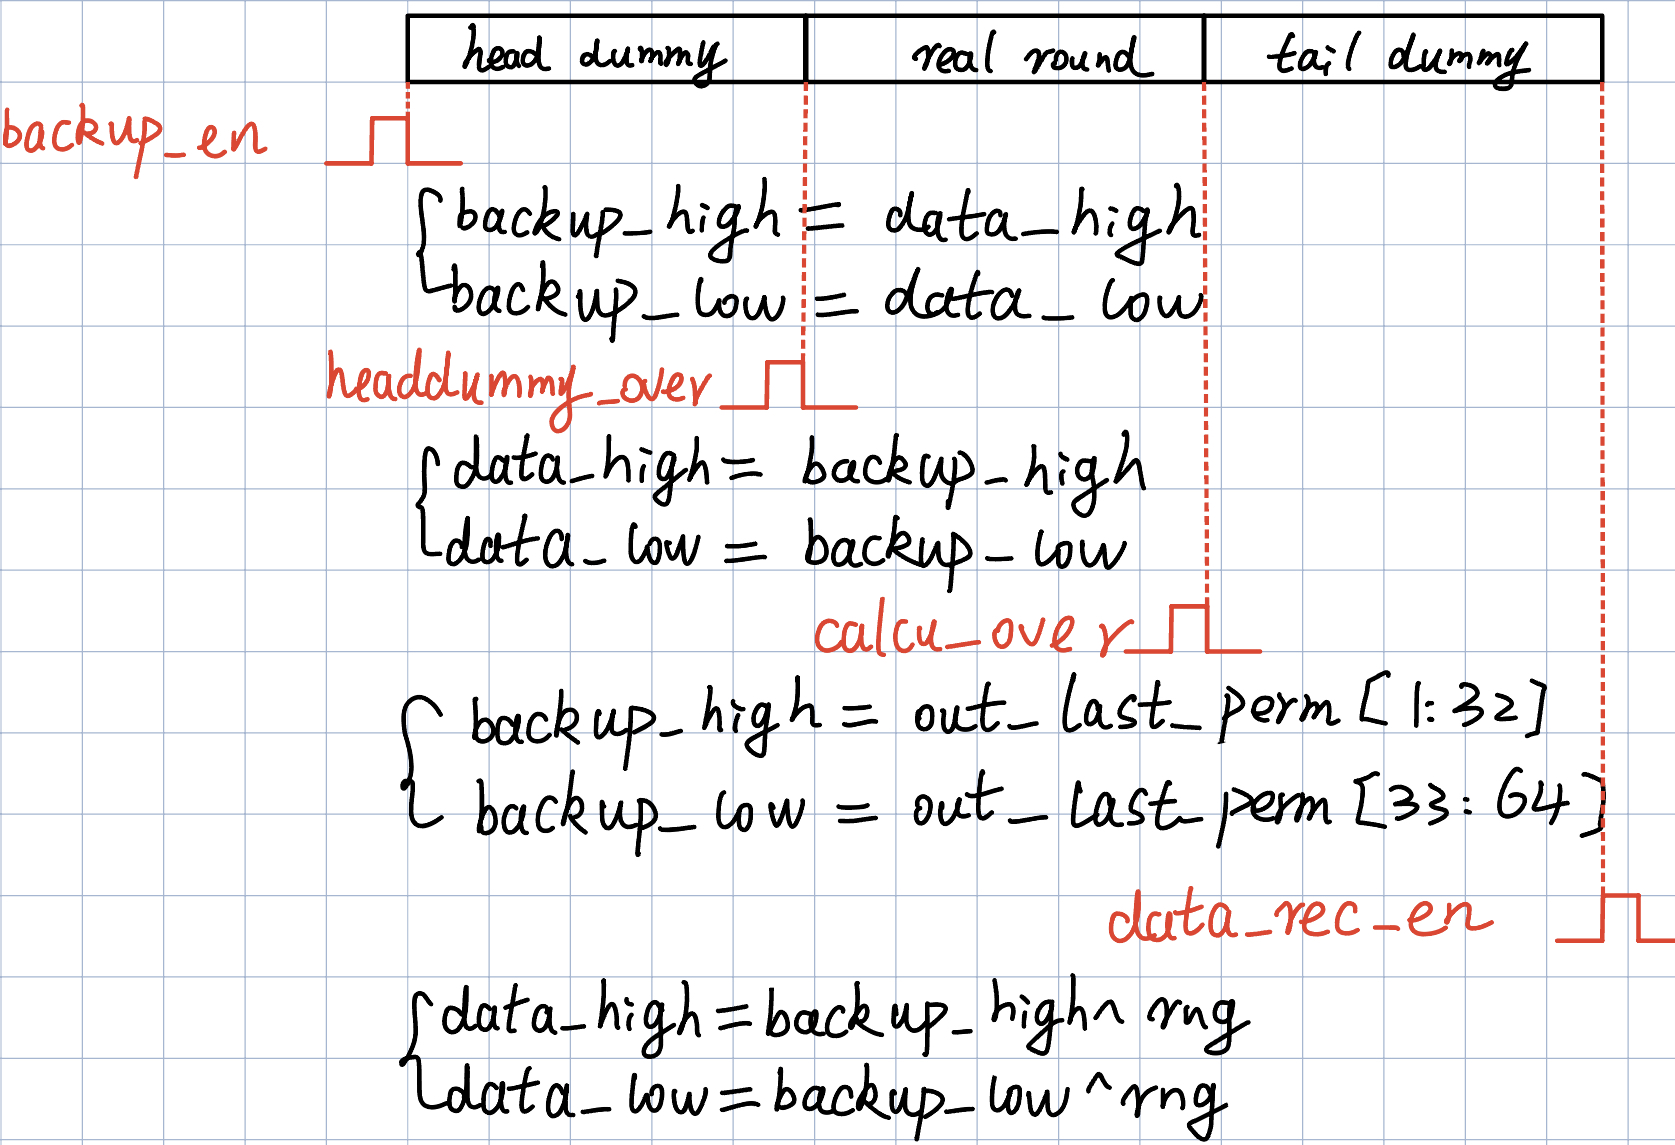 head dummy real round tail dummy
backup_en
backup_high = data_high
backup_low = data_low
headdummy_over
data_high = backup_high
data_low = backup_low
calcu_over
backup_high = out_last_perm [1:32]
backup_low = out_last_perm [33:64]
data_rec_en
data_high = backup_high ^ rng
data_low = backup_low ^ rng